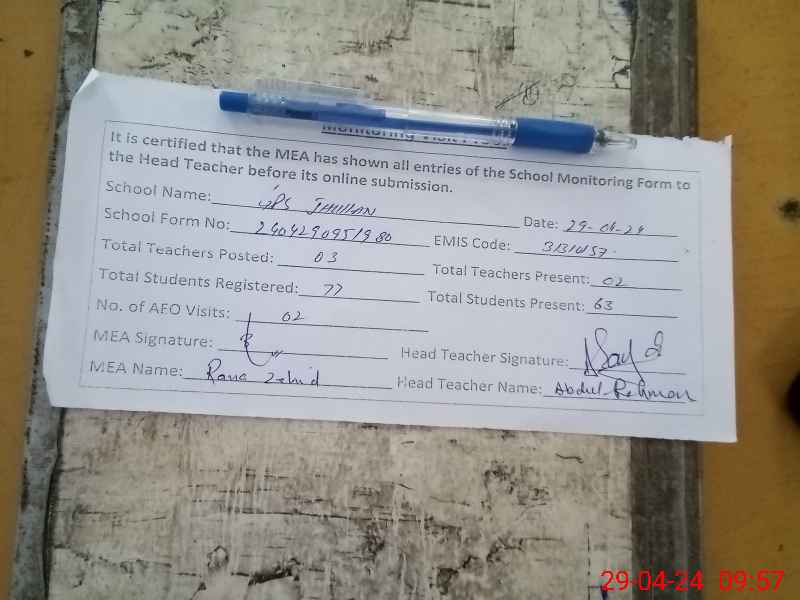 Monitoring Visit
It is certified that the MEA has shown all entries of the School Monitoring Form to
the Head Teacher before its online submission.
School Name: GPS JHULLAN Date: 29-04-24
School Form No: 2404290951980 EMIS Code:
Total Teachers Posted: 03 Total Teachers Present: 02
Total Students Registered: 77 Total Students Present: 63
No. of AFO Visits: 02
MEA Signature: Head Teacher Signature:
MEA Name: Rana Zahid Head Teacher Name: Abdul Rehman
29-04-24 09:57